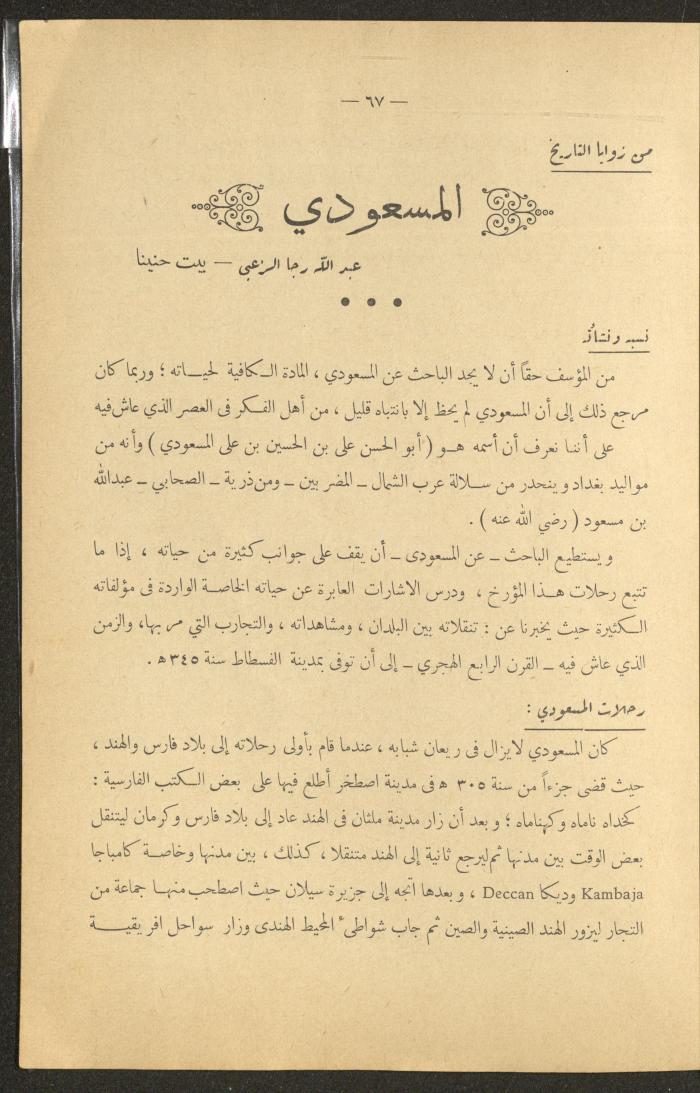 — ٦٧ —
من زوايا التاريخ
المسعودي
عبد الله رجا الزعبى — بيت حنينا
نسبه ونشأته
من المؤسف حقاً أن لا يجد الباحث عن المسعودي ، المادة الكافية لحياته ؛ وربما كان
مرجع ذلك إلى أن المسعودي لم يحظ إلا بانتباه قليل ، من أهل الفكر فى العصر الذي عاش فيه
على أننا نعرف أن أسمه هو ( أبو الحسن على بن الحسين بن على المسعودي ) وأنه من
مواليد بغداد وينحدر من سلالة عرب الشمال ــ المضربين ــ ومن ذرية ــ الصحابي ــ عبدالله
بن مسعود ( رضي الله عنه ) .
ويستطيع الباحث ــ عن المسعودى ــ أن يقف على جوانب كثيرة من حياته ، إذا ما
تتبع رحلات هذا المؤرخ ، ودرس الاشارات العابرة عن حياته الخاصة الواردة فى مؤلفاته
الكثيرة حيث يخبرنا عن : تنقلاته بين البلدان ، ومشاهداته ، والتجارب التي مر بها، والزمن
الذي عاش فيه ــ القرن الرابع الهجري ــ إلى أن توفى بمدينة الفسطاط سنة ٣٤٥ ه .
رحلات المسعودي :
كان المسعودي لايزال فى ريعان شبابه ، عندما قام بأولى رحلاته إلى بلاد فارس والهند ،
حيث قضى جزءاً من سنة ٣٠٥ ه فى مدينة اصطخر أطلع فيها على بعض الكتب الفارسية :
كخداه ناماه وكهناماه ؛ وبعد أن زار مدينة ملثان فى الهند عاد إلى بلاد فارس وكرمان ليتنقل
بعض الوقت بين مدنها ثم ليرجع ثانية إلى الهند متنقلا ، كذلك ، بين مدنها وخاصة كامباجا
Kambaja وديكا Deccan ، وبعدها اتجه إلى جزيرة سيلان حيث اصطحب منها جماعة من
التجار ليزور الهند الصينية والصين ثم جاب شواطىء المحيط الهندى وزار سواحل افريقية